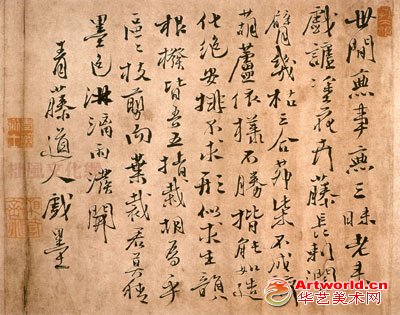 世間無事無三昧老來
戲謔塗花卉藤長刺闊
臂幾枯三合茅柴不成醉
葫蘆依樣不勝揩能如造
化絕安排不求形似求生韻
根撥皆吾五指栽胡為乎
區區枝剪而葉裁君莫猜
墨色淋漓雨潑開
青藤道人戲墨
Artworld.cn
华艺美术网